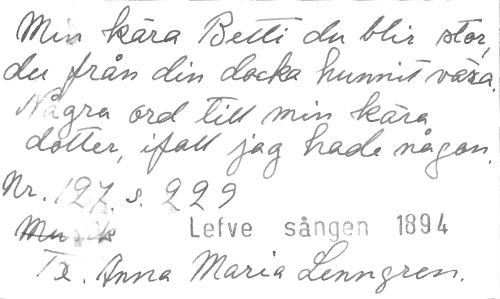 Min kära Betti du blir stor,
du från din docka hunnit växa.
Några ord till min kära
dotter, ifall jag hade någon.
Nr. 127. s. 229
Musik Lefve sången 1894
Tx. Anna Maria Lenngren.